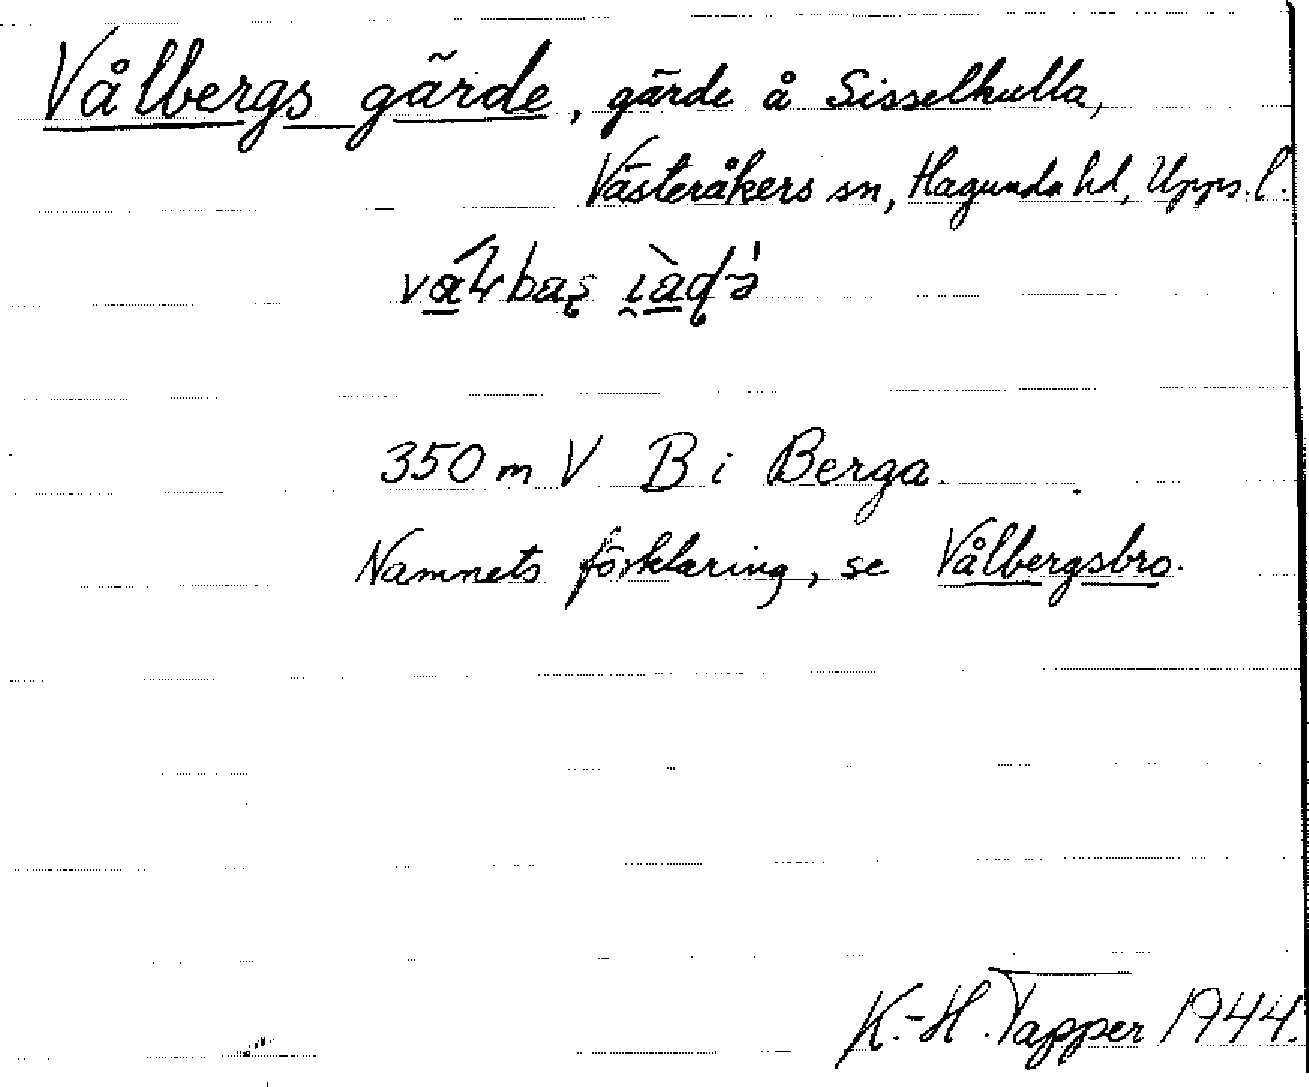 Vålbergs gärde, gärde å Sisselhulla,
Västeråkers sn, Hagunda hd, Upps. l.
350 m V B i Berga.
Namnets förklaring, se Vålbergsbro.
K.-H. Tapper 1944.